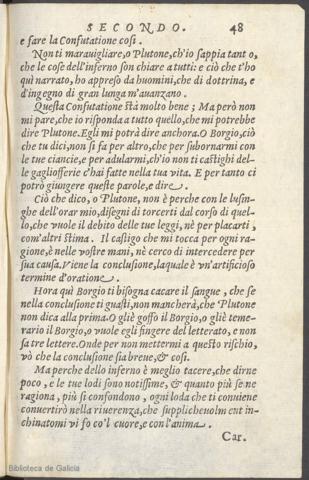 SECONDO. 48
e fare la Confutatione cosi.
Non ti marauigliare, o Plutone, ch'io sappia tanto,
che le cose dell'inferno son chiare a tutti: e ciò che t'ho
quì narrato, ho appreso da huomini, che di dottrina, e
d'ingegno di gran lunga m'auanzano.
Questa Confutatione stà molto bene; Ma però non
mi pare, che io risponda a tutto quello, che mi potrebbe
dire Plutone. Egli mi potrà dire anchora. O Borgio, ciò
che tu dici, non si fa per altro, che per subornarmi con
le tue ciancie, e per adularmi, ch'io non ti castighi del-
le gagliofferie c'hai fatte nella tua vita. E per tanto ci
potrò giungere queste parole, e dire.
Ciò che dico, o Plutone, non è perche con le lusin-
ghe dell'orar mio, disegni di torcerti dal corso di quel-
lo, che vuole il debito delle tue leggi, nè per placarti,
com'altri stima. Il castigo che mi tocca per ogni ra-
gione, è nelle vostre mani, nè cerco di intercedere per
sua causa. Viene la conclusione, laquale è vn'artificioso
termine d'oratione.
Hora quì Borgio ti bisogna cacare il sangue, che se
nella conclusione ti guasti, non mancherà, che Plutone
non dica alla prima. O gliè goffo il Borgio, o gliè teme-
rario il Borgio, o vuole egli fingere del letterato, e non
sa tre lettere. Onde per non mettermi a questo rischio,
vò che la conclusione sia breue, & cosi.
Ma perche dello inferno è meglio tacere, che dirne
poco, e le tue lodi sono notissime, & quanto più se ne
ragiona, più si confondono, ogni loda che ti conuiene
conuertirò nella riuerenza, che supplicheuolment in-
chinatomi vi fo co'l cuore, e con l'anima.
Car.
Biblioteca de Galicia